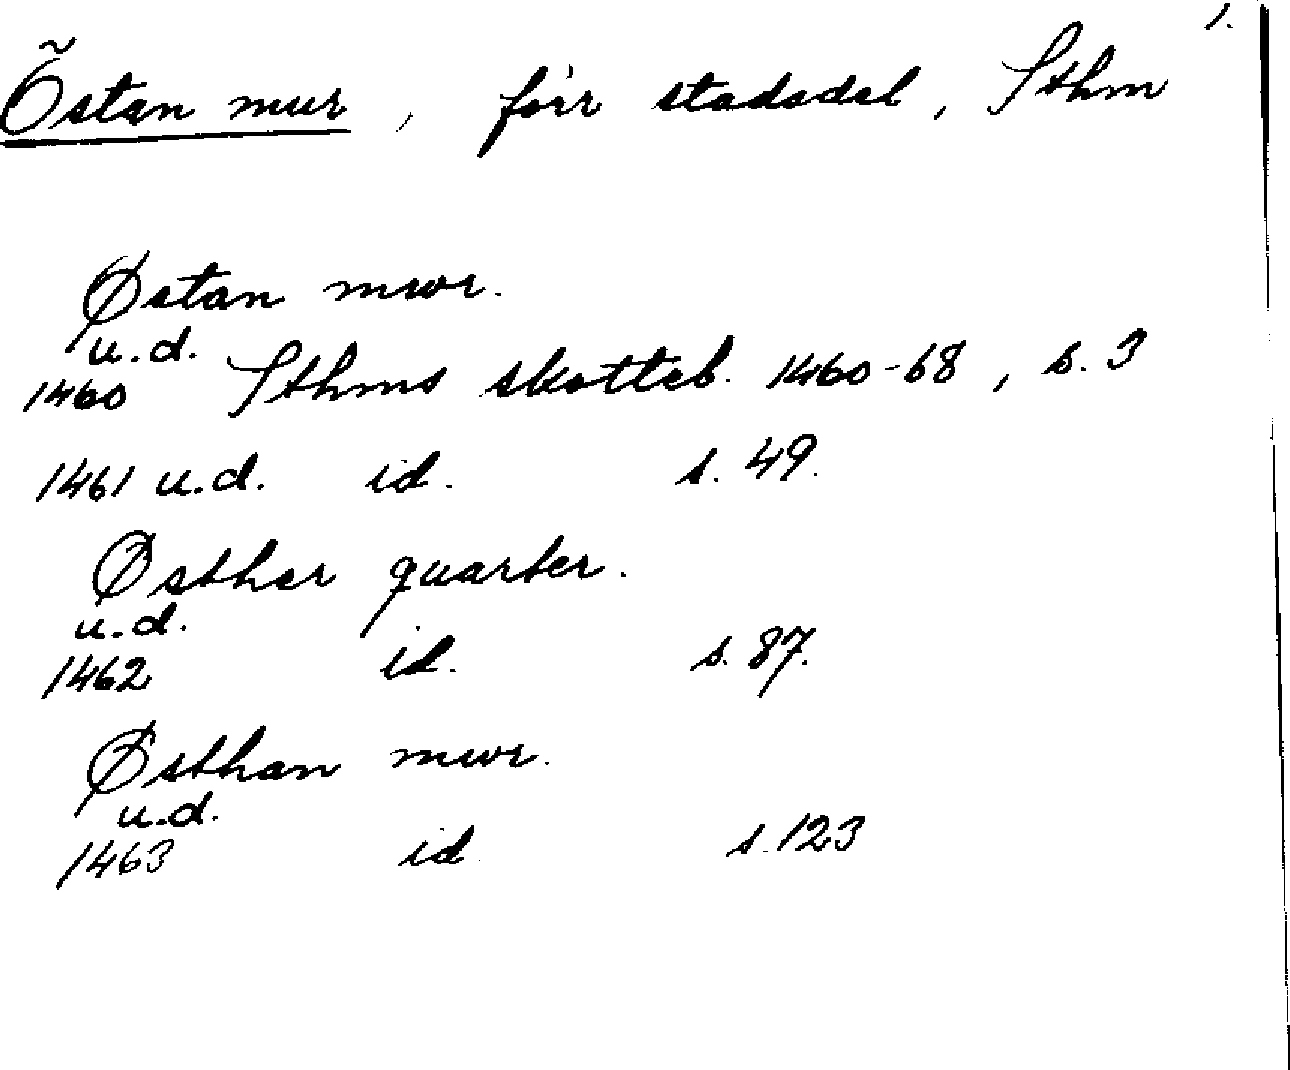 1.
Östan mur, förr stadsdel, Sthm
Østan mwr.
u.d.
1460 Sthms skotteb. 1460-68, s. 3
1461 u.d. id. s. 49.
Østher quarter.
u.d.
1462 id. s. 87.
Østhan mwr.
u.d.
1463 id s. 123